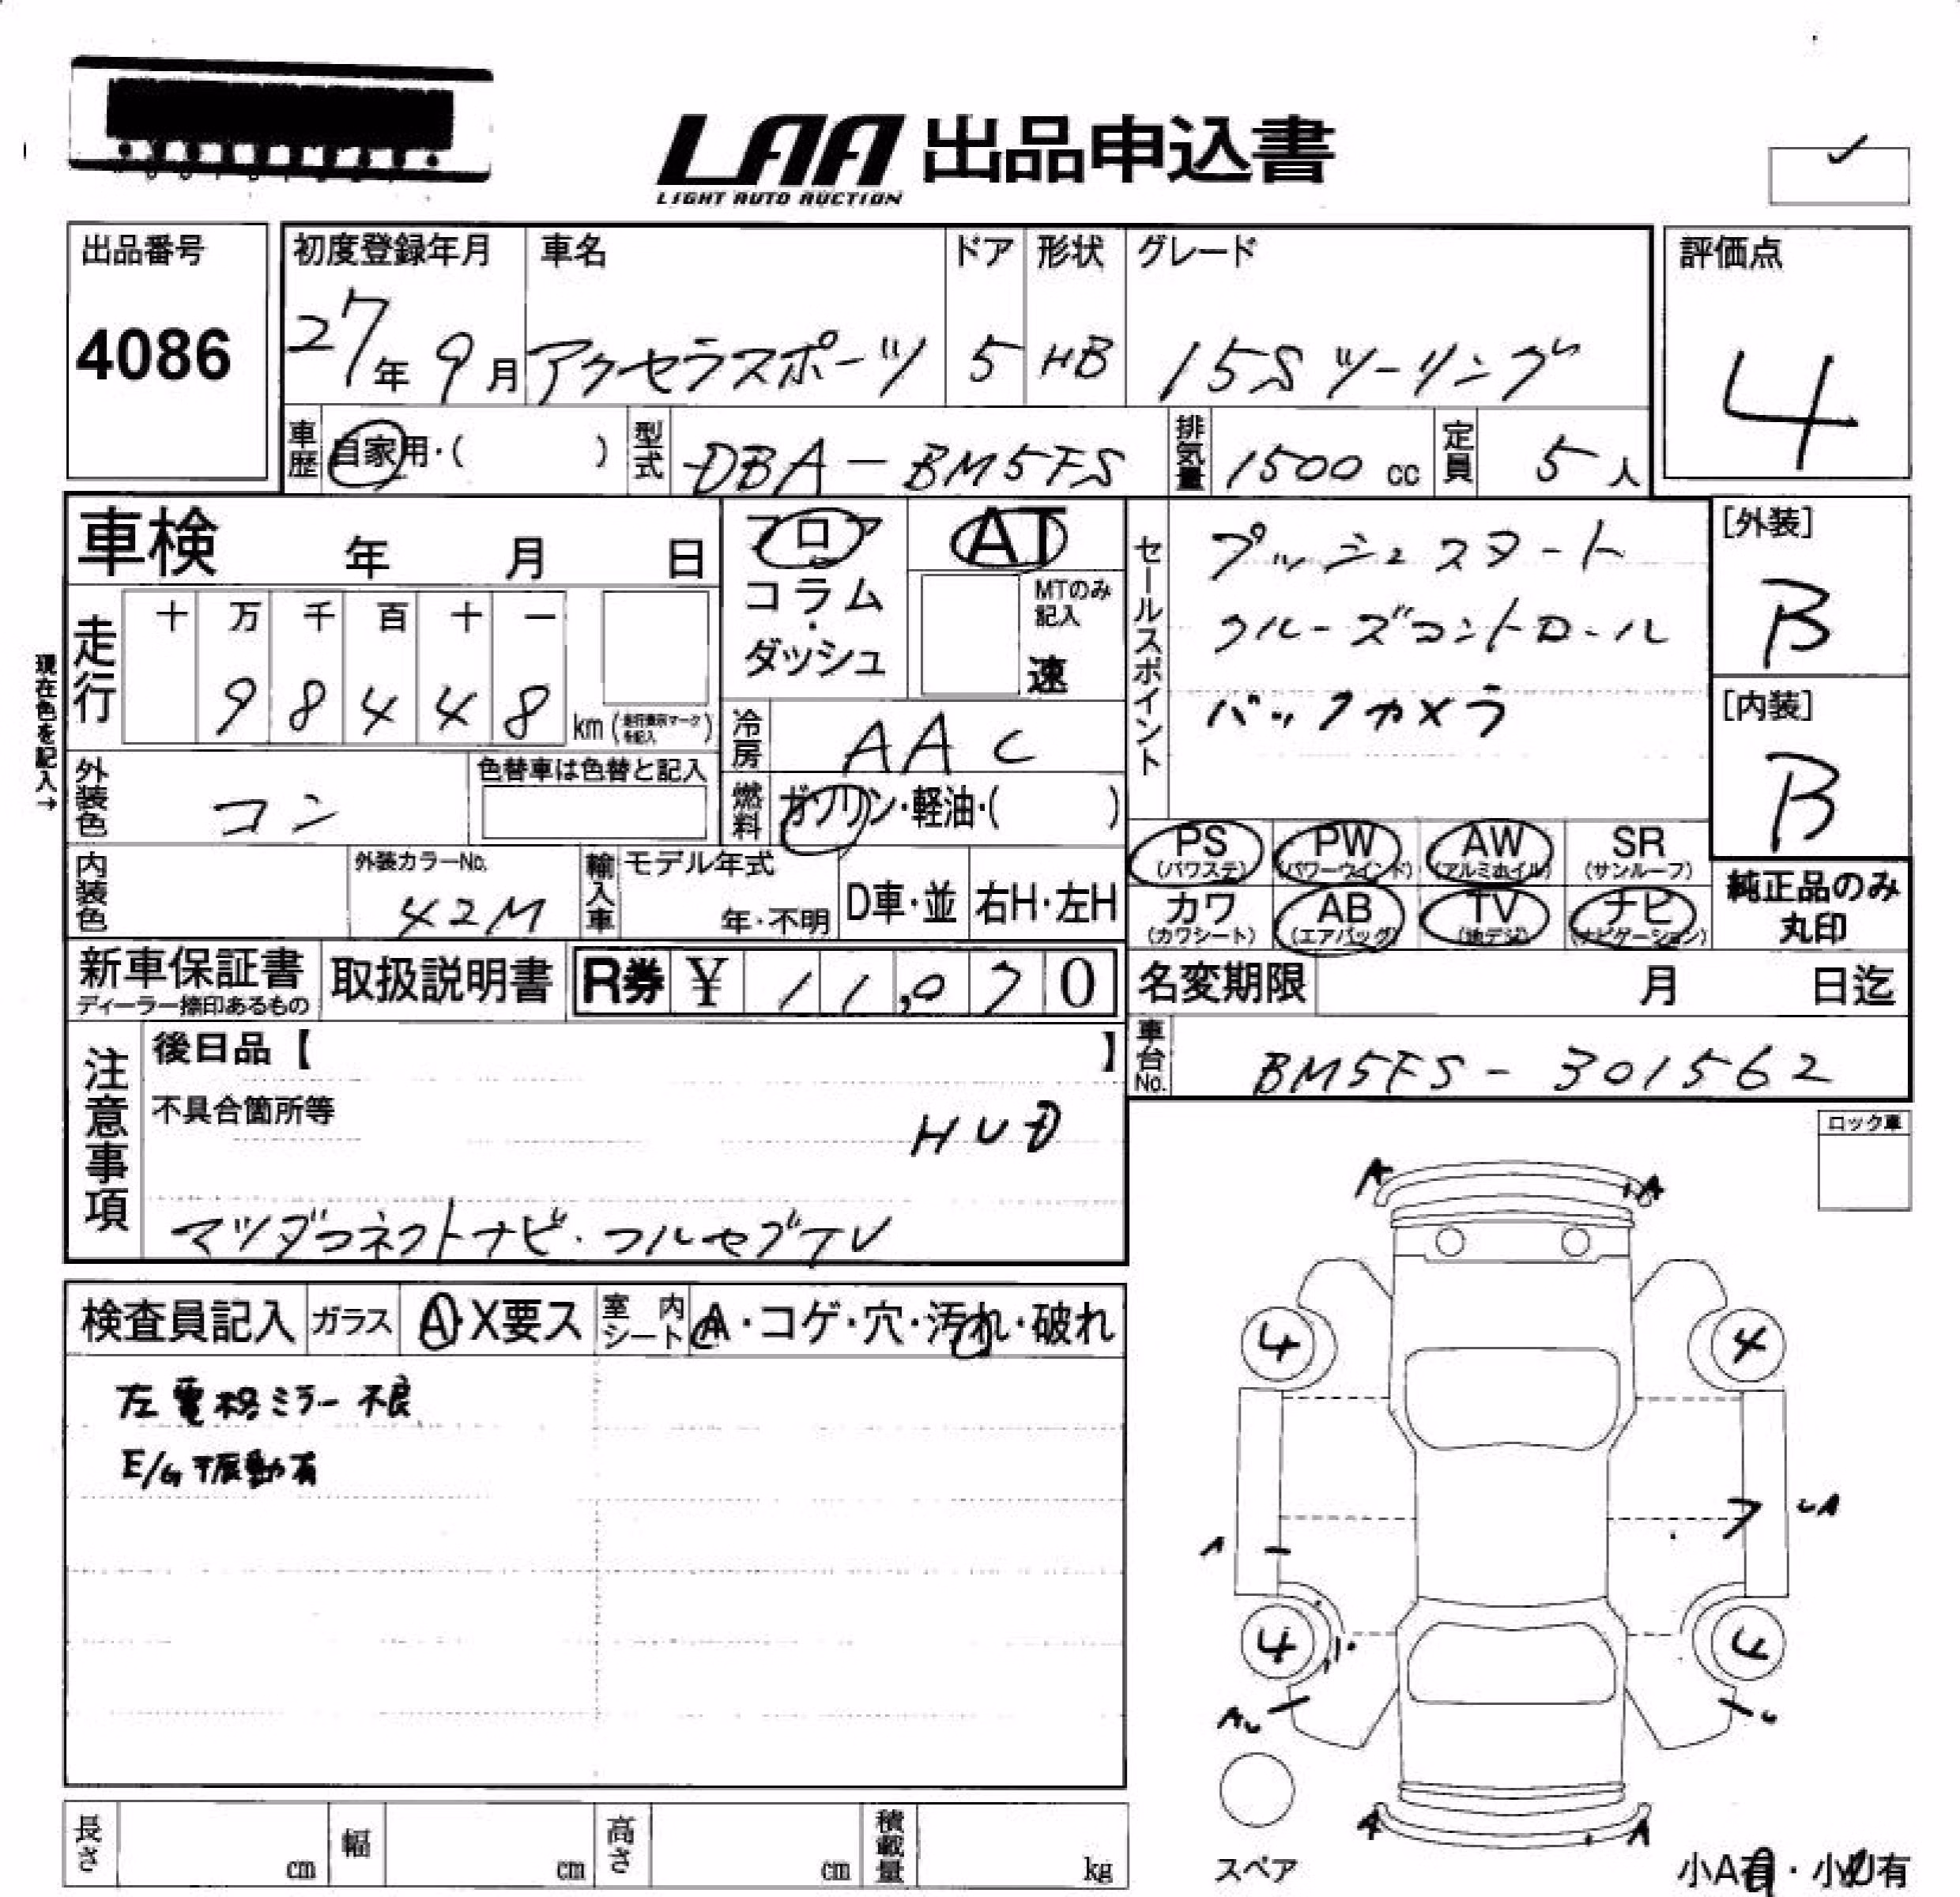 LAA 出品申込書
LIGHT AUTO AUCTION
出品番号
4086
初度登録年月
27年9月
車名
アクセラスポーツ
ドア
5
形状
HB
グレード
15Sツーリング
評価点
4
車歴
自家用・( )
型式
DBA-BM5FS
排気量
1500 cc
定員
5人
車検 年 月 日
フロア
コラム
・
ダッシュ
AT
MTのみ
記入
速
セールスポイント
プッシュスタート
クルーズコントロール
バックカメラ
[外装]
B
[内装]
B
現在色を記入→
走行
十 万 千 百 十 一
9 8 4 4 8 km (走行表示マークを記入)
冷房
AAC
外装色
コン
色替車は色替と記入
燃料
ガソリン・軽油・( )
PS
(パワステ)
PW
(パワーウインド)
AW
(アルミホイル)
SR
(サンルーフ)
カワ
(カワシート)
AB
(エアバッグ)
TV
(地デジ)
ナビ
(ナビゲーション)
純正品のみ
丸印
内装色
外装カラーNo.
42M
輸入車
モデル年式
年・不明
D車・並
右H・左H
新車保証書
ディーラー捺印あるもの
取扱説明書
R券 ¥ 11,070
名変期限 月 日迄
車台No.
BM5FS-301562
注意事項
後日品【 】
不具合箇所等
HUD
マツダコネクトナビ・フルセグTV
ロック車
検査員記入
ガラス
A・X要ス
室内
シート
A・コゲ・穴・汚れ・破れ
左電格ミラー不良
E/G振動有
A A
4 4
A
UA
4 4
AU
U
A A
スペア
小A有・小U有
長さ cm
幅 cm
高さ cm
積載量 kg